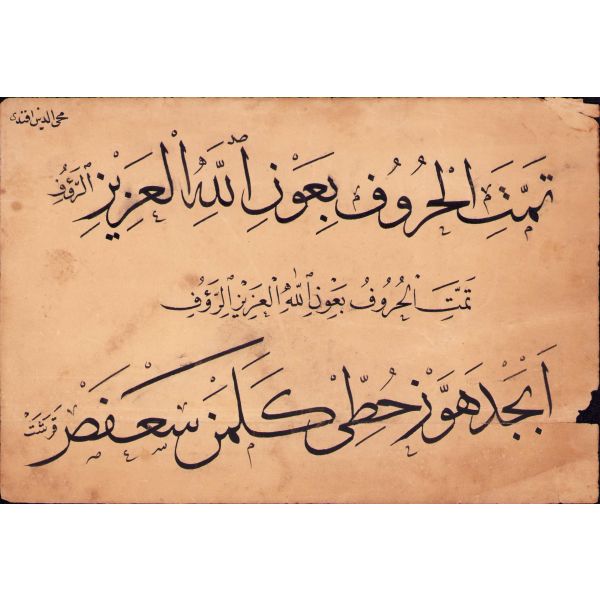 محي الدين افندى
تَمَّتِ الْحُرُوفُ بِعَوْنِ اللّٰهِ الْعَزِيزِ الرَّؤُفِ
تَمَّتِ الْحُرُوفُ بِعَوْنِ اللّٰهِ الْعَزِيزِ الرَّؤُفِ
اَبْجَدْ هَوَّزْ حُطِّى كَلَمَنْ سَعْفَصْ قَرَشَتْ